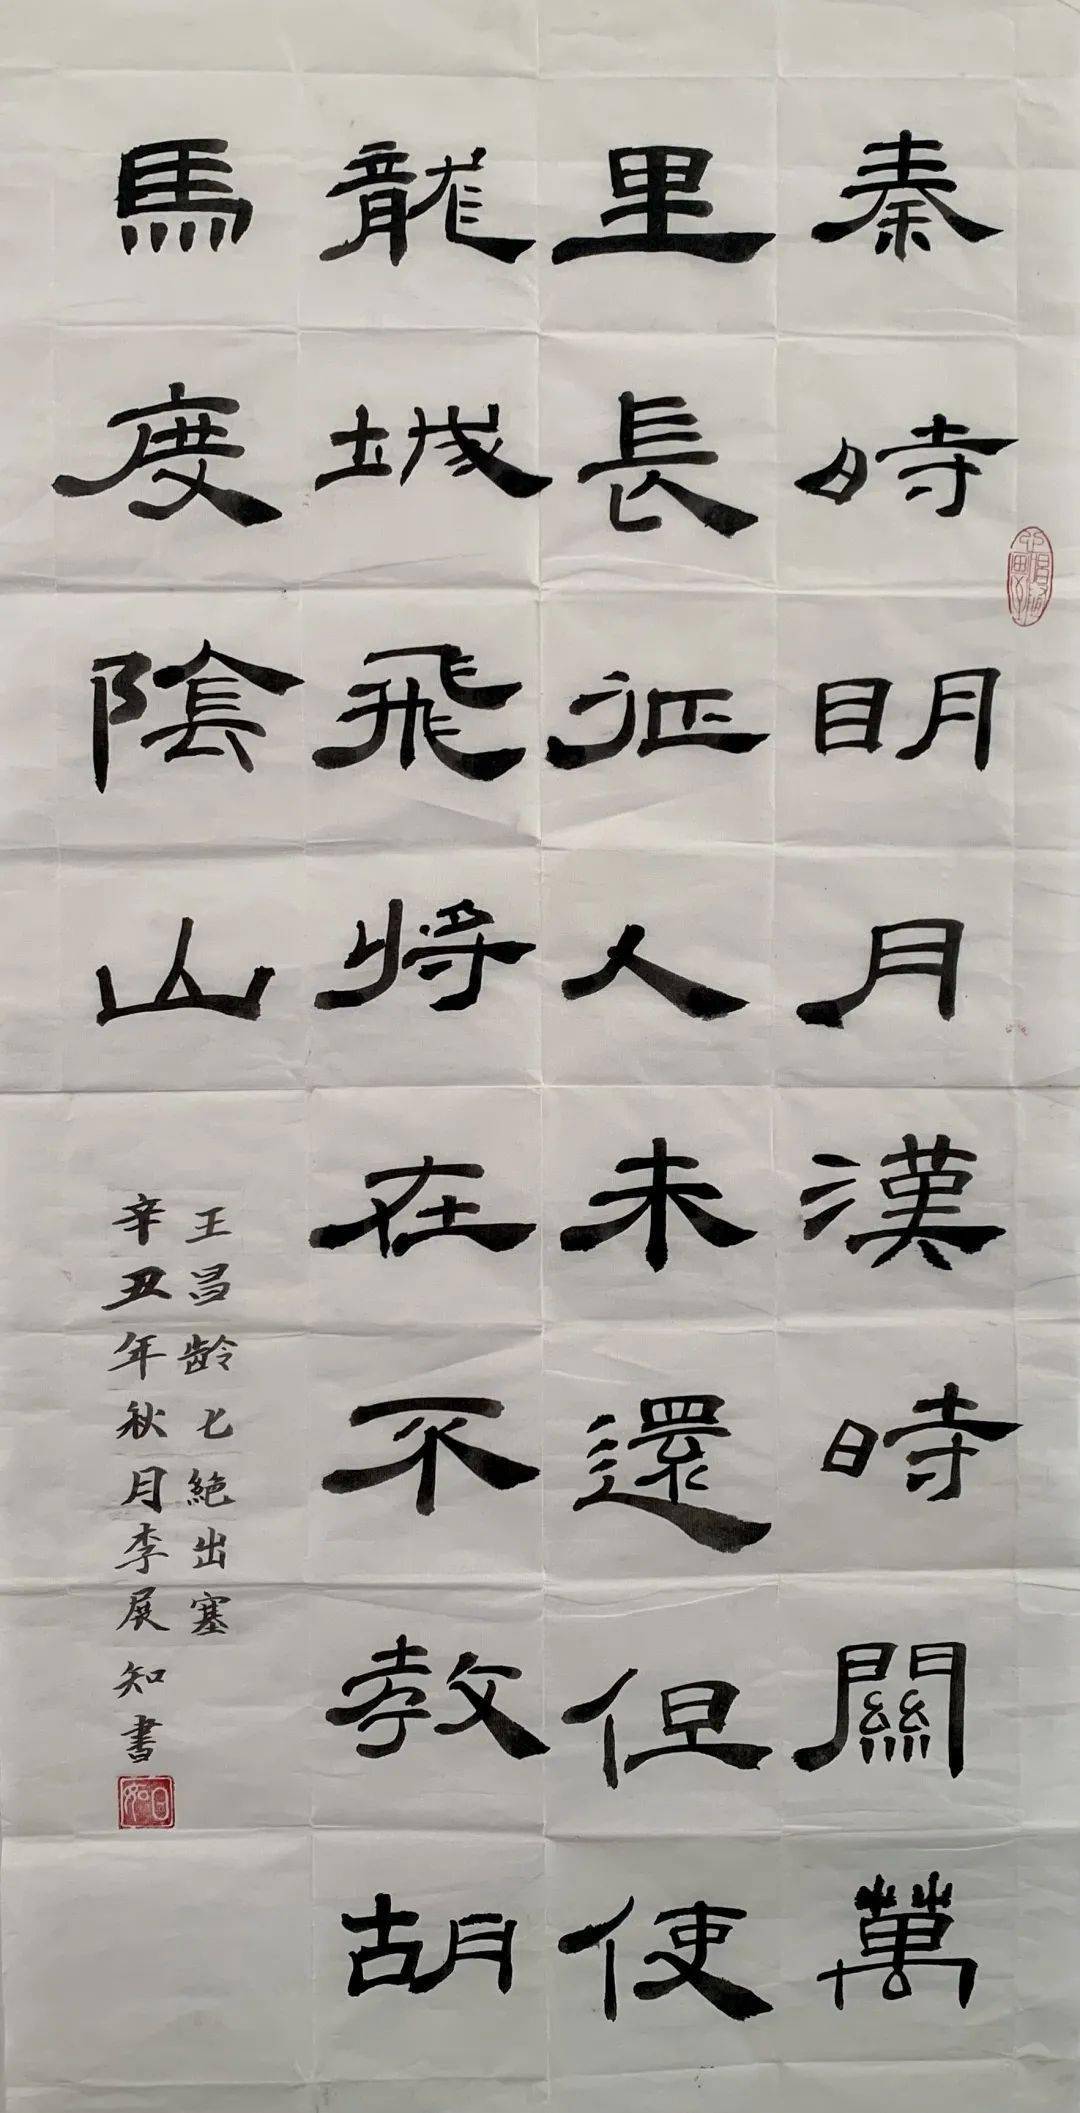 秦時明月漢時關萬
里長征人未還但使
龍城飛將在不教胡
馬度陰山
王昌齡七絕出塞
辛丑年秋月李展知書